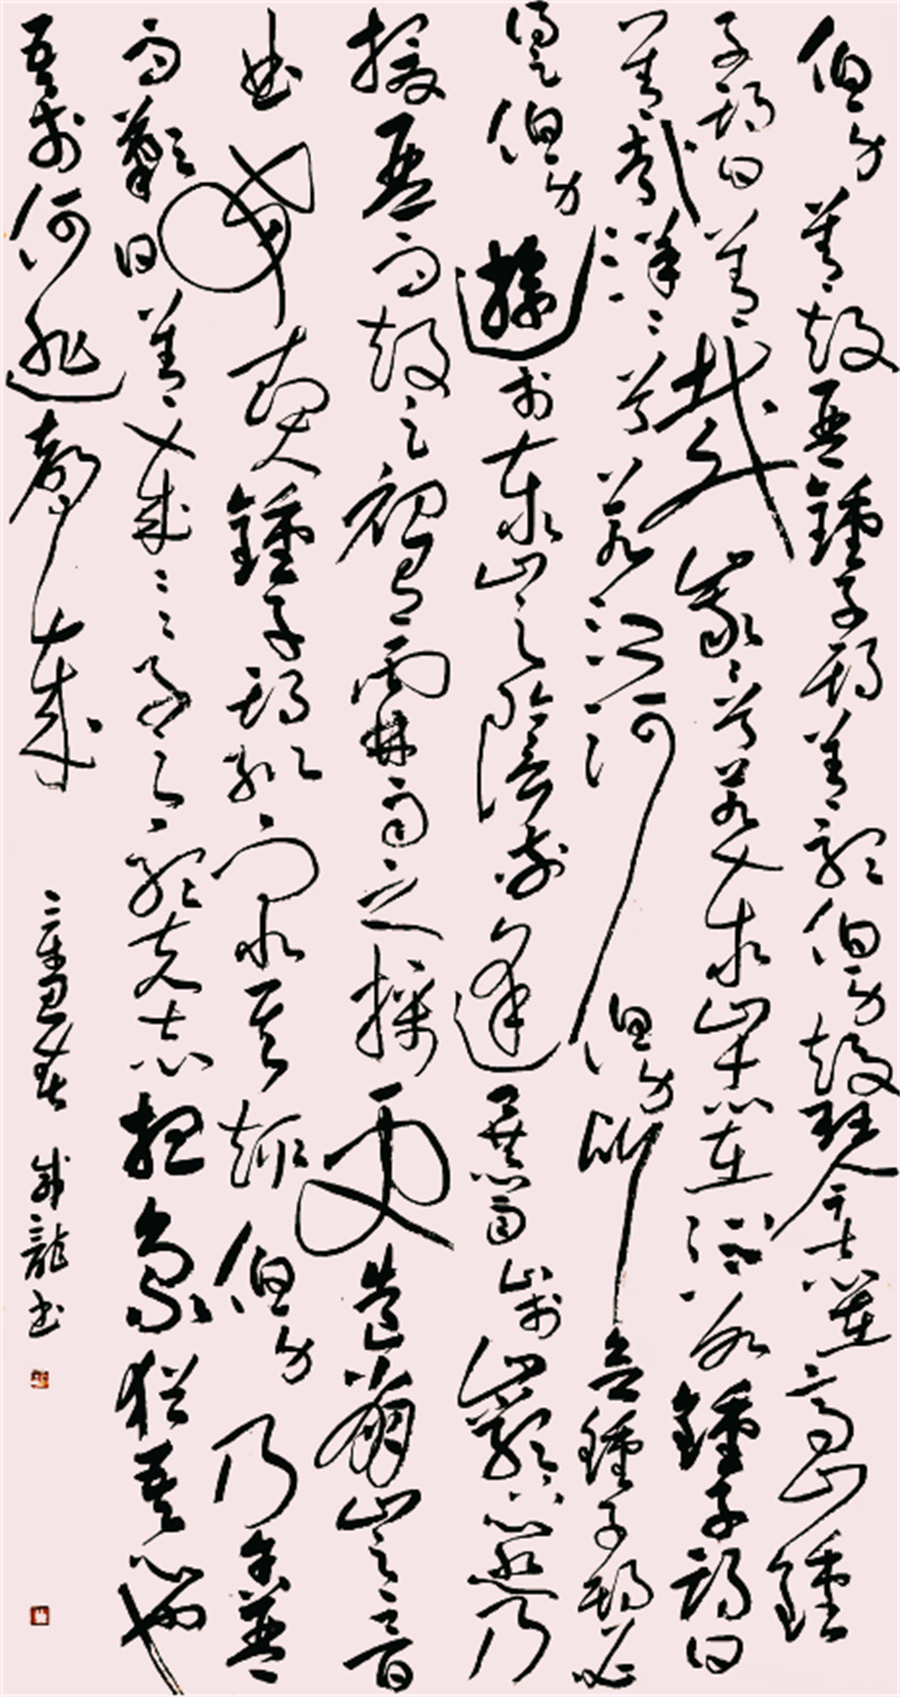 伯牙善鼓琴鍾子期善聽伯牙鼓琴志在高山鍾
子期曰善哉峩峩兮若泰山志在流水鍾子期曰
善哉洋洋兮若江河伯牙所念鍾子期必
得之伯牙遊於泰山之陰卒逢暴雨止於巖下心悲乃
援琴而鼓之初為霖雨之操更造崩山之音
曲每奏鍾子期輒窮其趣伯牙乃舍琴
而歎曰善哉善哉子之聽夫志想象猶吾心也
吾於何逃聲哉
辛丑春 龍书